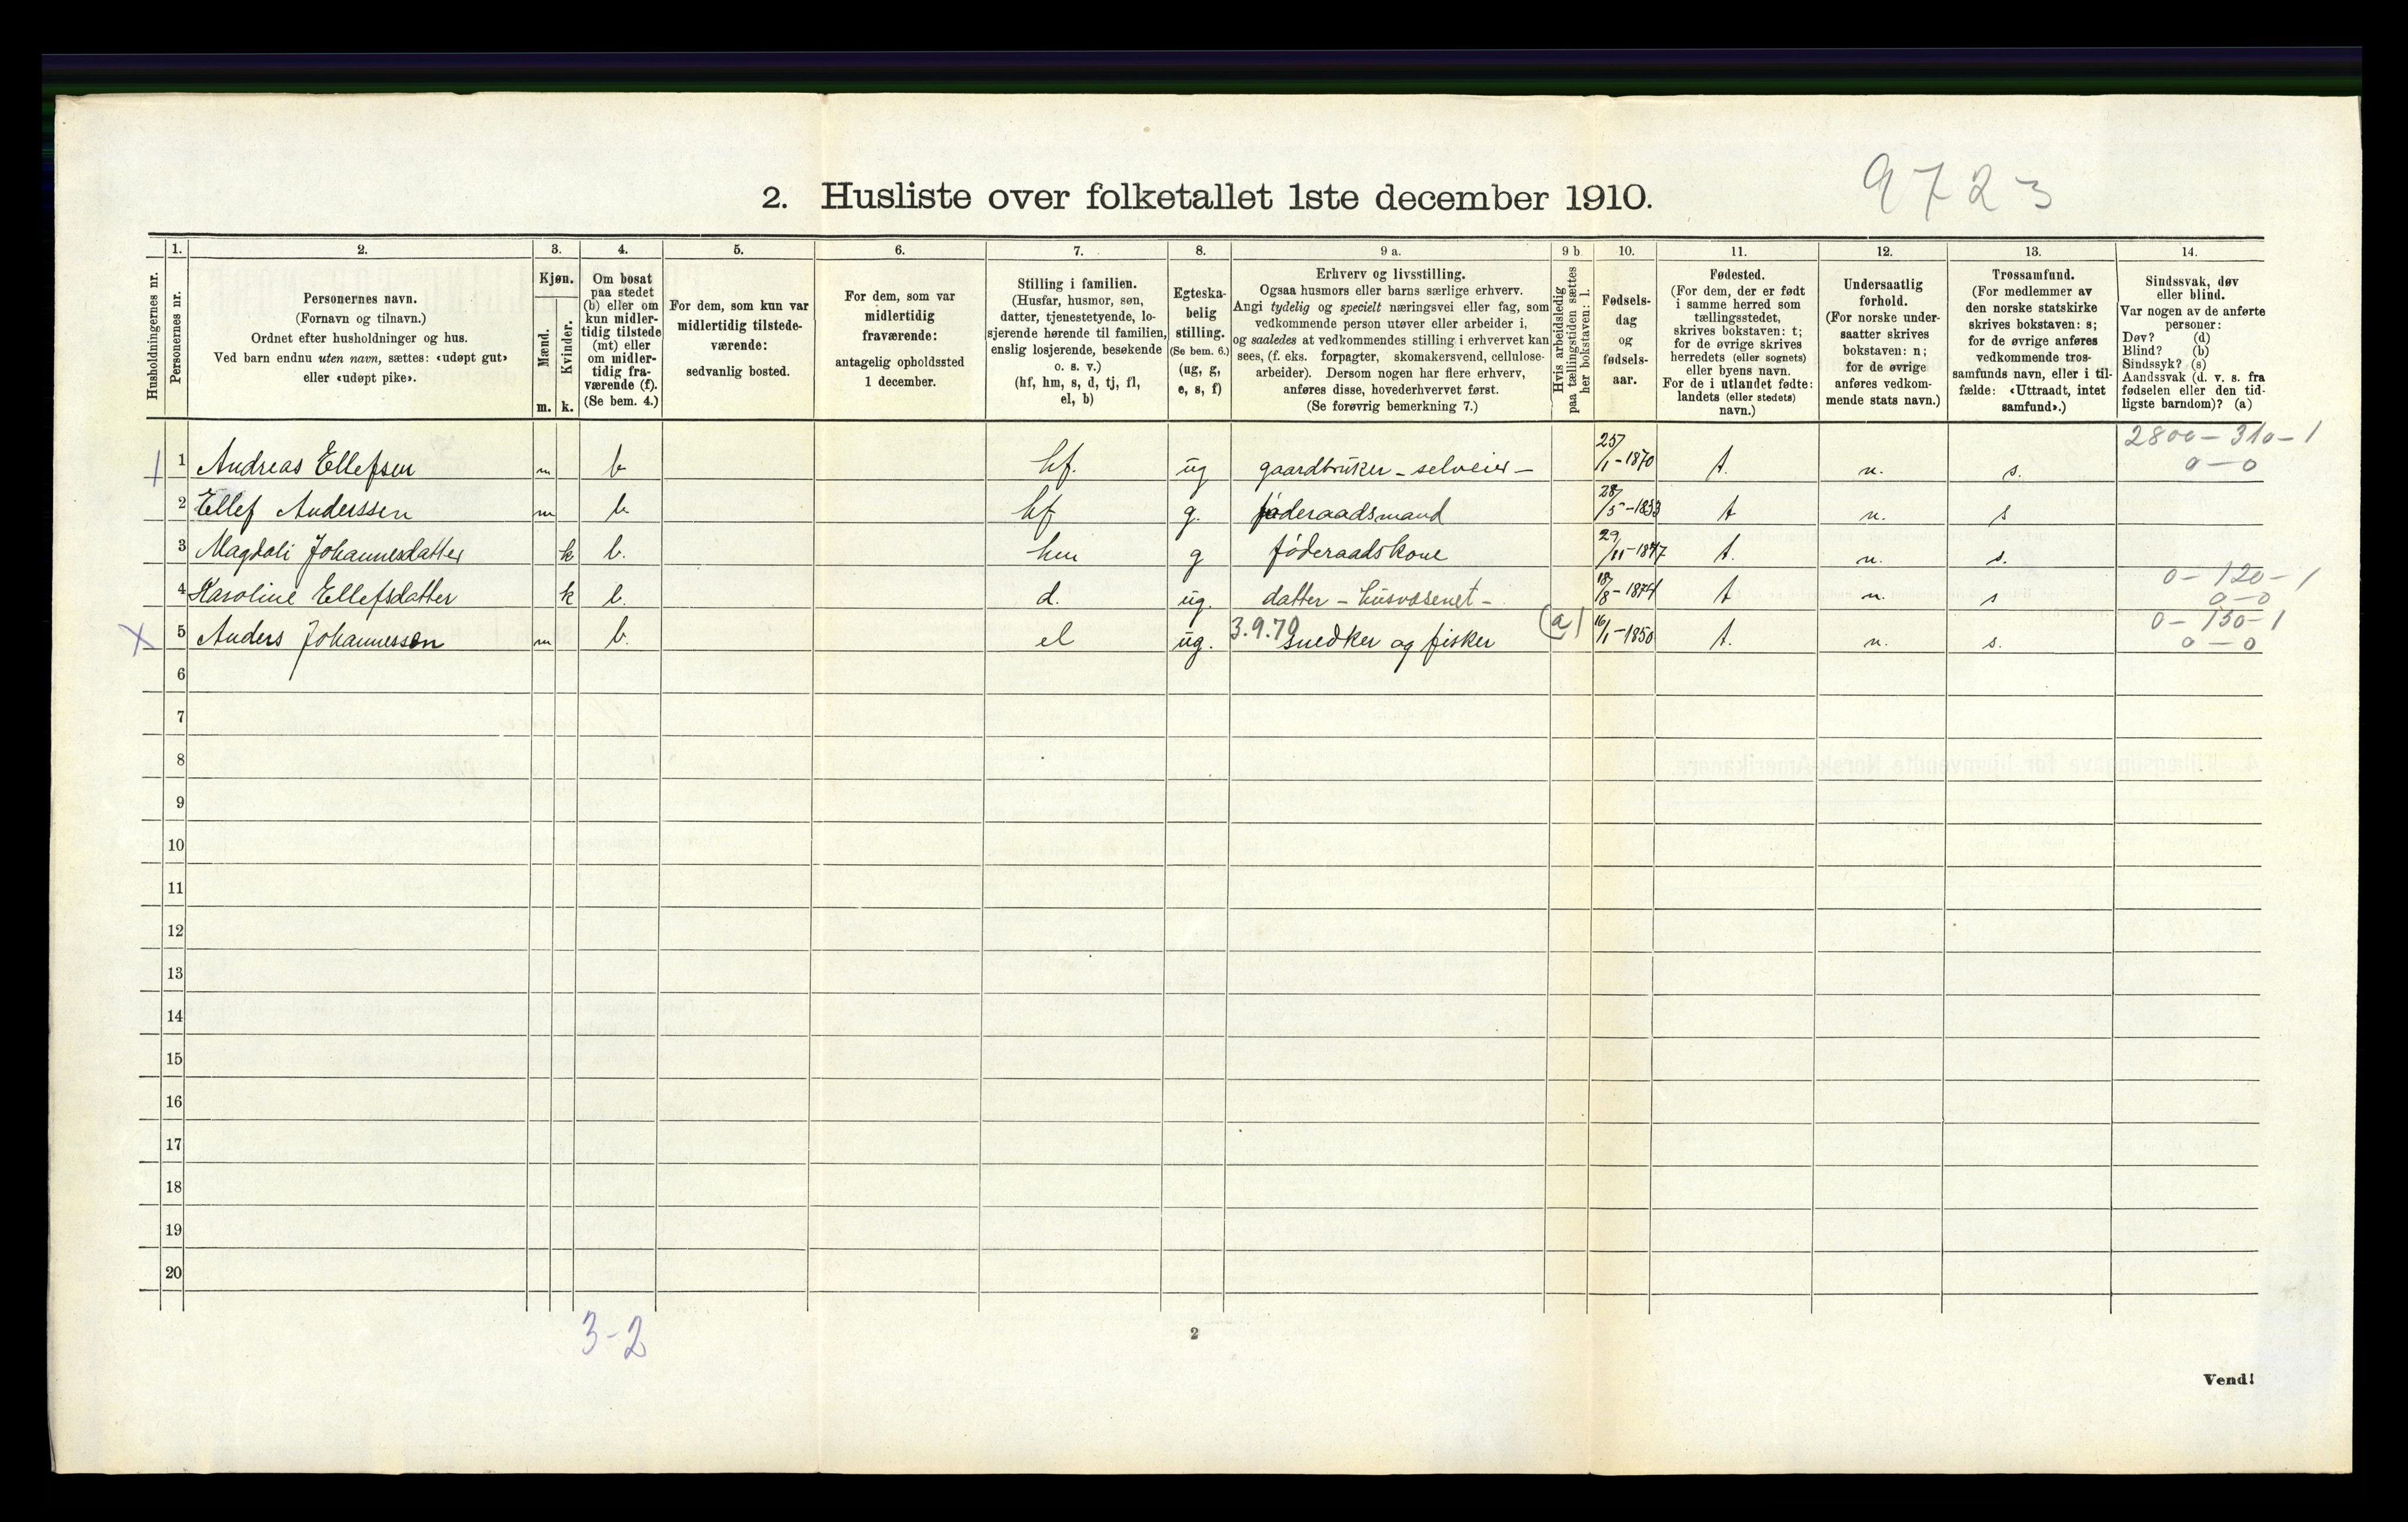 9723
2. Husliste over folketallet 1ste december 1910.
Husholdningernes nr.
1.
Personernes nr.
2.
Personernes navn.
(Fornavn og tilnavn.)
Ordnet efter husholdninger og hus.
Ved barn endnu uten navn, sættes: «udøpt gut»
eller «udøpt pike».
3.
Kjøn.
Mænd.
Kvinder.
m. k.
4.
Om bosat
paa stedet
(b) eller om
kun midler-
tidig tilstede
(mt) eller
om midler-
tidig fra-
værende (f).
(Se bem. 4.)
5.
For dem, som kun var
midlertidig tilstede-
værende:
sedvanlig bosted.
6.
For dem, som var
midlertidig
fraværende:
antagelig opholdssted
1 december.
7.
Stilling i familien.
(Husfar, husmor, søn,
datter, tjenestetyende, lo-
sjerende hørende til familien,
enslig losjerende, besøkende
o. s. v.)
(hf, hm, s, d, tj, fl,
el, b)
8.
Egteska-
belig
stilling.
(Se bem. 6.)
(ug, g,
e, s, f)
9 a.
Erhverv og livsstilling.
Ogsaa husmors eller barns særlige erhverv.
Angi tydelig og specielt næringsvei eller fag, som
vedkommende person utøver eller arbeider i,
og saaledes at vedkommendes stilling i erhvervet kan
sees, (f. eks. forpagter, skomakersvend, cellulose-
arbeider). Dersom nogen har flere erhverv,
anføres disse, hovederhvervet først.
(Se forøvrig bemerkning 7.)
9 b
Hvis arbeidsledig
paa tællingstiden sættes
her bokstaven: l.
10.
Fødsels-
dag
og
fødsels-
aar.
11.
Fødested.
(For dem, der er født
i samme herred som
tællingsstedet,
skrives bokstaven: t;
for de øvrige skrives
herredets (eller sognets)
eller byens navn.
For de i utlandet fødte:
landets (eller stedets)
navn.)
12.
Undersaatlig
forhold.
(For norske under-
saatter skrives
bokstaven: n;
for de øvrige
anføres vedkom-
mende stats navn.)
13.
Trossamfund.
(For medlemmer av
den norske statskirke
skrives bokstaven: s;
for de øvrige anføres
vedkommende tros-
samfunds navn, eller i til-
fælde: «Uttraadt, intet
samfund».)
14.
Sindssvak, døv
eller blind.
Var nogen av de anførte
personer:
Døv? (d)
Blind? (b)
Sindssyk? (s)
Aandssvak (d. v. s. fra
fødselen eller den tid-
ligste barndom)? (a)
2800-310-1
1 Andreas Ellefsen m b hf. ug gaardbruker - selveier - 25/1-1870 t. n. s. 0-0
2 Ellef Anderssen m b hf g. føderaadsmand 28/5-1833 t n. s
3 Magdoli Johannesdatter k b. hm g føderaadskone 29/11-1847 t. n. s.
0-120-1
4 Karoline Ellefsdatter k b. d. ug. datter - husvæsenet - 18/8-1874 t n. s 0-0
3.9.70 (a) 0-150-1
5 Anders Johannessen m b. el ug. snedker og fisker 16/1-1850 t. n. s. 0-0
6
7
8
9
10
11
12
13
14
15
16
17
18
19
20
3-2
2
Vend!